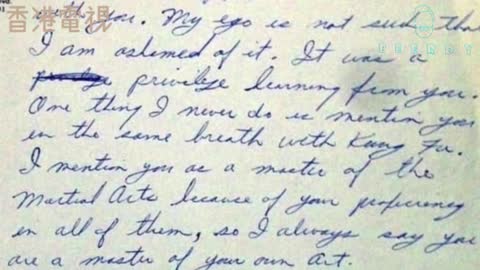 香港電視
with you. My ego is not such that
I am ashamed of it. It was a
privilege learning from you.
One thing I never do is mention you
in the same breath with Kung Fu.
I mention you as a master of the
Martial Arts because of your proficiency
in all of them, so I always say you
are a master of your own art.